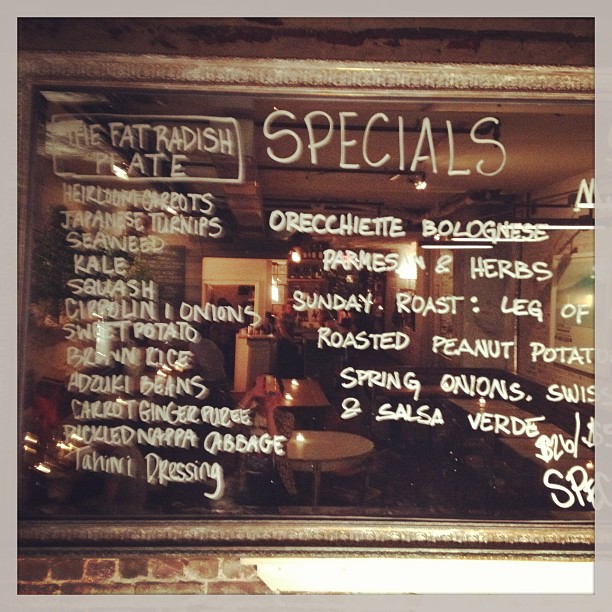 THE FAT RADISH
PLATE
HEIRLOOM CARROTS
JAPANESE TURNIPS
SEAWEED
KALE
SQUASH
CIPPOLINI ONIONS
SWEET POTATO
BROWN RICE
ADZUKI BEANS
CARROT GINGER PUREE
PICKLED NAPPA CABBAGE
Tahini Dressing
SPECIALS
ORECCHIETTE BOLOGNESE
PARMESAN & HERBS
SUNDAY. ROAST: LEG OF
ROASTED PEANUT POTAT
SPRING ONIONS. SWIS
& SALSA VERDE